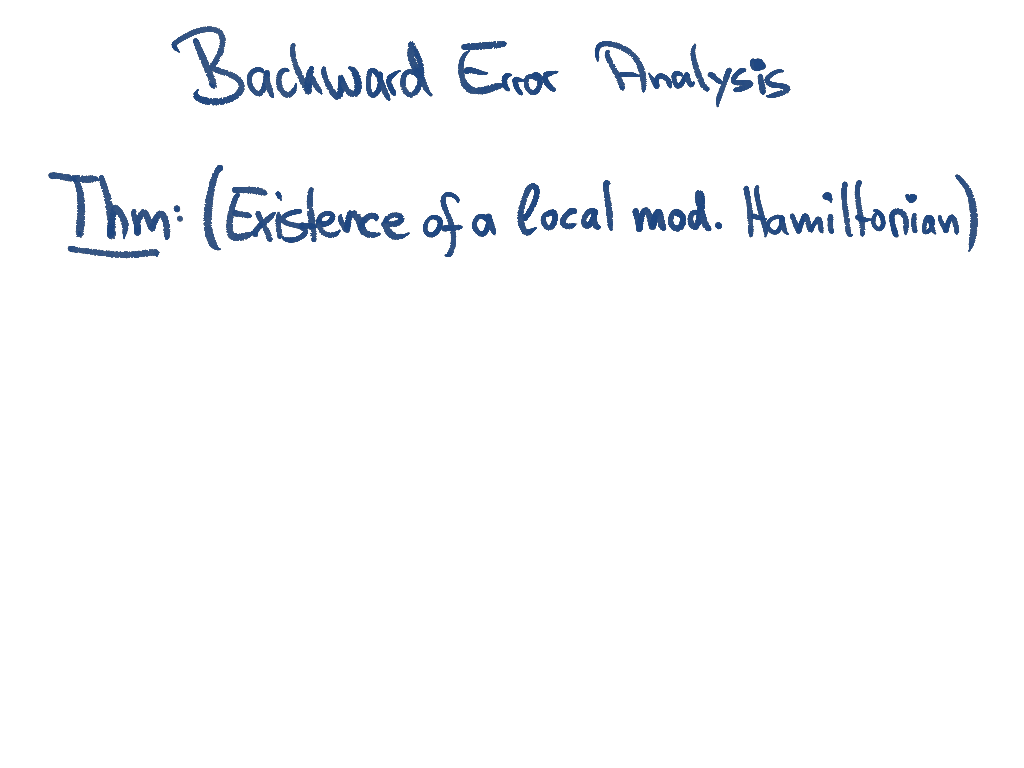 Backward Error Analysis
Thm: (Existence of a local mod. Hamiltonian)